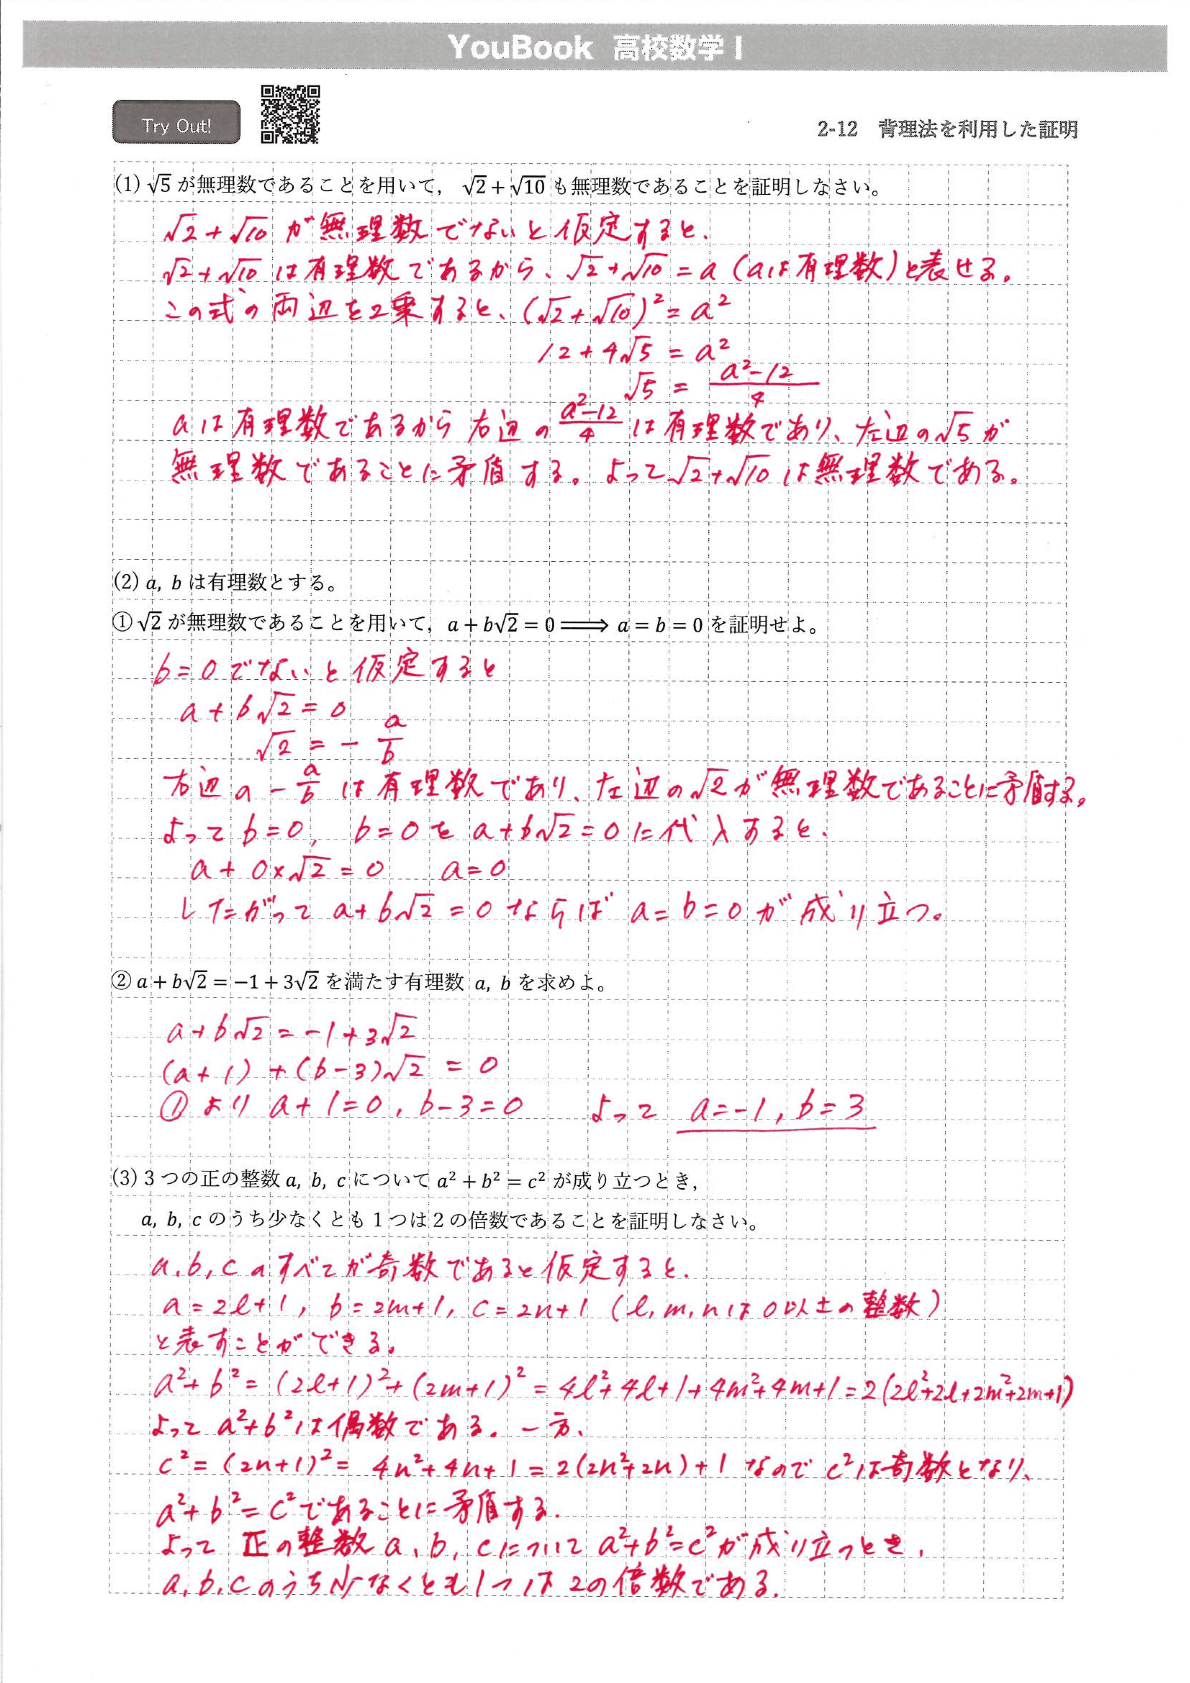 YouBook 高校数学 I
Try Out!
2-12 背理法を利用した証明
(1) √5 が無理数であることを用いて, √2+√10 も無理数であることを証明しなさい。
√2+√10 が無理数でないと仮定すると、
√2+√10 は有理数であるから、√2+√10 = a (aは有理数)と表せる。
この式の両辺を2乗すると、(√2+√10)² = a²
12+4√5 = a²
√5 = (a²-12)/4
aは有理数であるから右辺の (a²-12)/4 は有理数であり、左辺の√5が
無理数であることに矛盾する。よって√2+√10 は無理数である。
(2) a, b は有理数とする。
① √2 が無理数であることを用いて, a+b√2=0 ⟹ a=b=0 を証明せよ。
b=0でないと仮定すると
a+b√2=0
√2 = -a/b
右辺の -a/b は有理数であり、左辺の√2が無理数であることに矛盾する。
よって b=0, b=0を a+b√2=0に代入すると、
a+0×√2=0 a=0
したがって a+b√2=0 ならば a=b=0が成り立つ。
② a+b√2=-1+3√2 を満たす有理数 a, b を求めよ。
a+b√2=-1+3√2
(a+1)+(b-3)√2 = 0
①より a+1=0, b-3=0 よって a=-1, b=3
(3) 3つの正の整数 a, b, c について a²+b²=c² が成り立つとき,
a, b, c のうち少なくとも1つは2の倍数であることを証明しなさい。
a, b, c のすべてが奇数であると仮定すると、
a=2l+1, b=2m+1, c=2n+1 (l, m, nは0以上の整数)
と表すことができる。
a²+b²=(2l+1)²+(2m+1)²=4l²+4l+1+4m²+4m+1=2(2l²+2l+2m²+2m+1)
よって a²+b²は偶数である。一方、
c²=(2n+1)²=4n²+4n+1=2(2n²+2n)+1 なので c²は奇数となり、
a²+b²=c²であることに矛盾する。
よって 正の整数 a, b, cについて a²+b²=c²が成り立つとき、
a, b, cのうち少なくとも1つは2の倍数である。